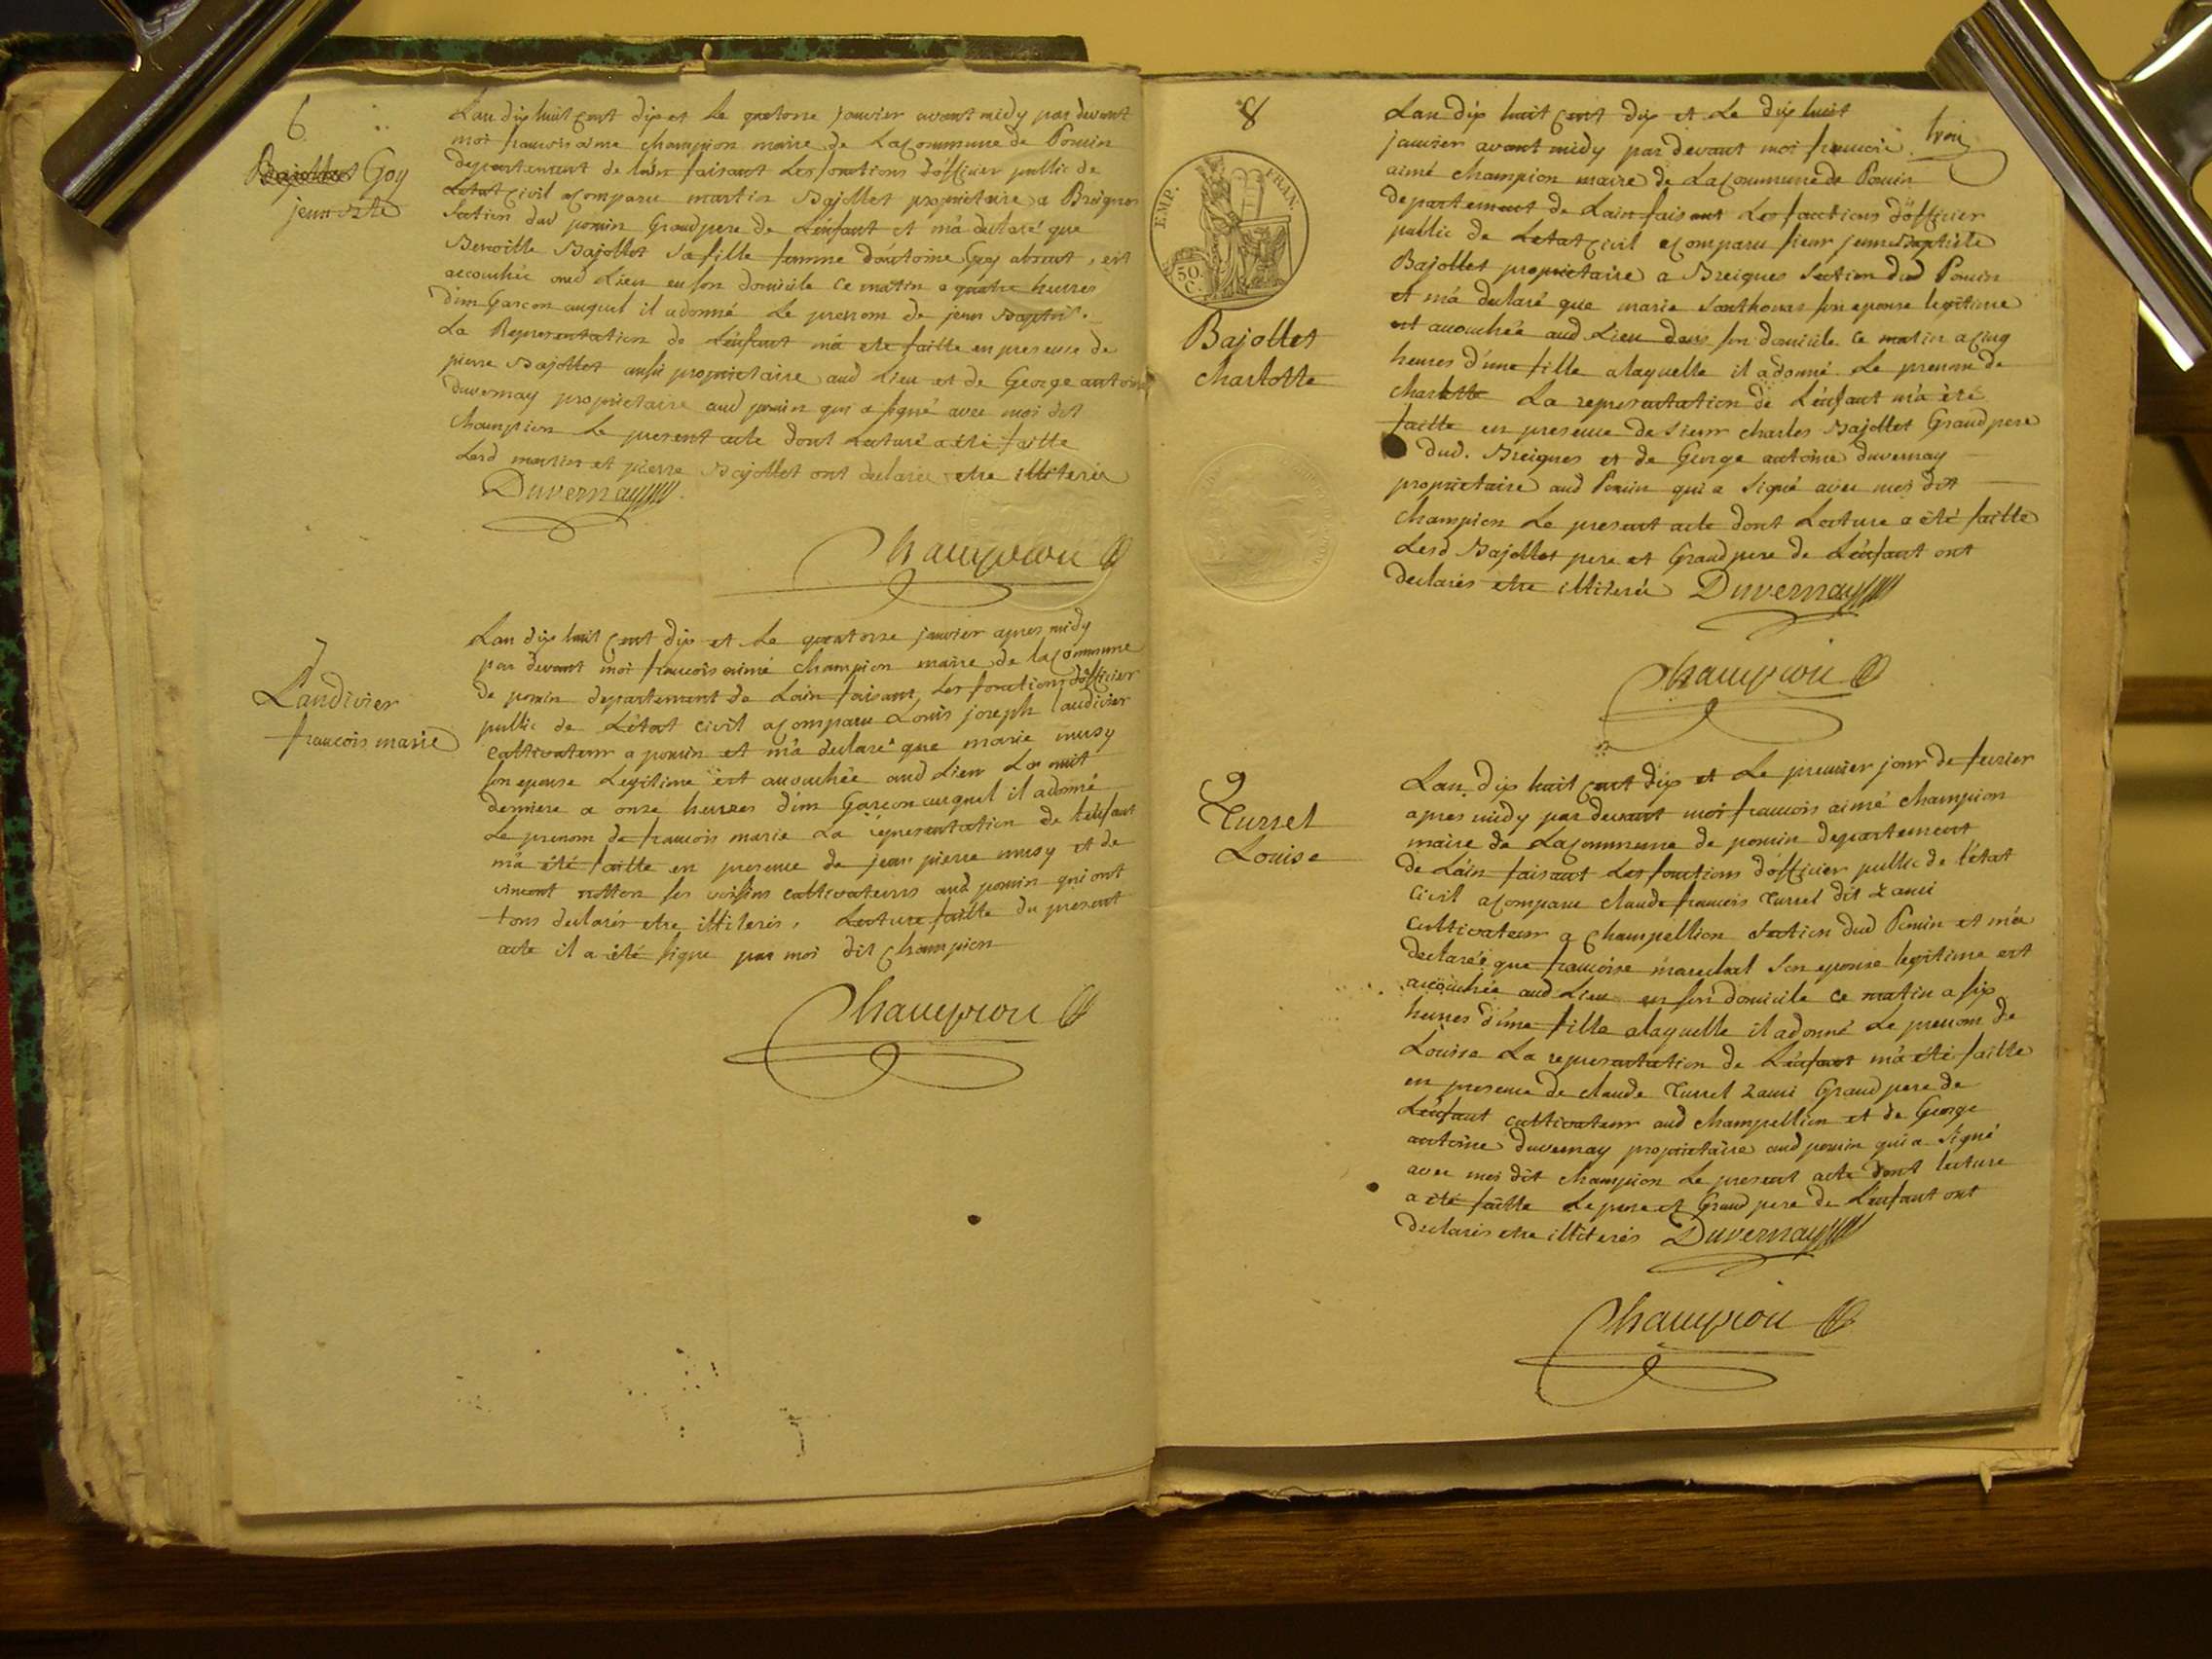 6
Bajollet Goy
jean bte
Lan dix huit cent dix et le quatorse janvier avant midy par devant
moi francois aime champion maire de La Commune de Poncin
departement de lain faisant Les fonctions d'officier public de
Letat Civil a Comparu martin Bajollet proprietaire a Breignes
Section dud poncin Grand pere de Lenfant et m'a declaré que
Benoitte Bajollet Sa fille femme d'antoine Goy absent, est
accouchée aud Lieu en son domicile Ce matin a quatre heures
d'un Garcon auquel il a donné Le prenom de jean Baptis.
La Representation de Lenfant m'a ete faitte en presence de
pierre Bajollet aussi proprietaire aud Lieu et de George antoine
duvernay proprietaire aud poncin qui a signé avec moi dit
Champion Le present acte dont Lecture a été faitte
Lesd martin et pierre Bajollet ont declarés etre illiterés
Duvernay
Champion
7
Landivier
francois marie
Lan dix huit Cent dix et Le quatorse janvier apres midy
par devant moi francois aimé champion maire de la Commune
de poncin departement de Lain faisant Les fonctions d'officier
public de L'état Civil a Comparu Louis joseph Landivier
Cultivateur a poncin et m'a declaré que marie musy
son epouse Legitime est accouchée aud Lieu La nuit
derniere a onze heures d'un Garcon auquel il a donné
Le prenom de francois marie La representation de L'enfant
m'a été faitte en presence de jean pierre musy et de
vincent notton ses voisins cultivateurs aud poncin qui ont
tous declarés etre illiterés. Lecture faitte du present
acte il a été signe par moi dit Champion
Champion
8
EMP. FRAN.
50.
C.
Bajollet
Charlotte
Lan dix huit Cent dix et Le dix huit
janvier avant midy par devant moi francois
aimé champion maire de La Commune de Poncin
departement de Lain faisant Les fonctions d'officier
public de Letat Civil a Comparu sieur jean Baptiste
Bajollet proprietaire a Breignes Section dud Poncin
et m'a declaré que marie Santhonas son epouse legitime
est accouchée aud Lieu dans son domicile Ce matin a Cinq
heures d'une fille a laquelle il a donné Le prenom de
Charlotte La representation de L'enfant m'a été
faitte en presence de Sieur charles Bajollet Grand pere
dud. Breignes et de George antoine duvernay
proprietaire aud Poncin qui a Signé avec moi dit
Champion Le present acte dont Lecture a été faitte
Lesd Bajollet pere et Grand pere de L'enfant ont
declarés etre illiterés Duvernay
Champion
9
Turrel
Louise
Lan dix huit Cent dix et Le premier jour de fevrier
apres midy par devant moi francois aimé champion
maire de La Commune de poncin departement
de Lain faisant Les fonctions d'officier public de l'état
Civil a Comparu claude francois Turrel dit Zami
Cultivateur a Champellion Section dud Poncin et m'a
declaré que francoise marechal Son epouse legitime est
accouchée aud Lieu en son domicile Ce matin a six
heures d'une fille a laquelle il a donné Le prenom de
Louise La representation de L'enfant m'a été faitte
en presence de claude Turrel Zami Grand pere de
L'enfant cultivateur aud Champellion et de George
antoine duvernay proprietaire aud poncin qui a Signé
avec moi dit Champion Le present acte dont lecture
a été faitte Le pere et Grand pere de L'enfant ont
declarés etre illiterés Duvernay
Champion